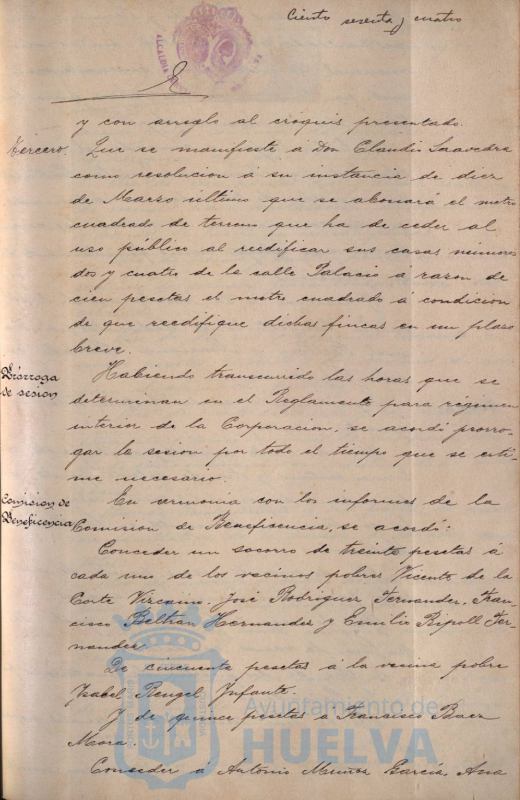 Ciento sesenta y cuatro
ALCALDIA
y con arreglo al croquis presentado.
Tercero. Que se manifieste á Don Claudio Saavedra
como resolucion á su instancia de diez
de Marzo último que se abonará el metro
cuadrado de terreno que ha de ceder al
uso público al reedificar sus casas números
dos y cuatro de la calle Palacio á razon de
cien pesetas el metro cuadrado á condicion
de que reedifique dichas fincas en un plazo
breve.
Prórroga de sesion
Habiendo transcurrido las horas que se
determinan en el Reglamento para régimen
interior de la Corporacion, se acordó prorro-
gar la sesion por todo el tiempo que se esti-
me necesario.
Comision de Beneficencia
En armonia con los informes de la
Comision de Beneficencia, se acordó:
Conceder un socorro de treinta pesetas á
cada uno de los vecinos pobres Vicente de la
Corte Vizcaino, José Rodriguez Fernandez, Fran-
cisco Beltran Hernandez y Emilio Ripoll Fer-
nandez.
De cincuenta pesetas á la vecina pobre
Isabel Rengel Infante.
Y de quince pesetas á Francisco Baez
Mora.
Conceder á Antonio Muñoz García, Ana
Ayuntamiento de
HUELVA